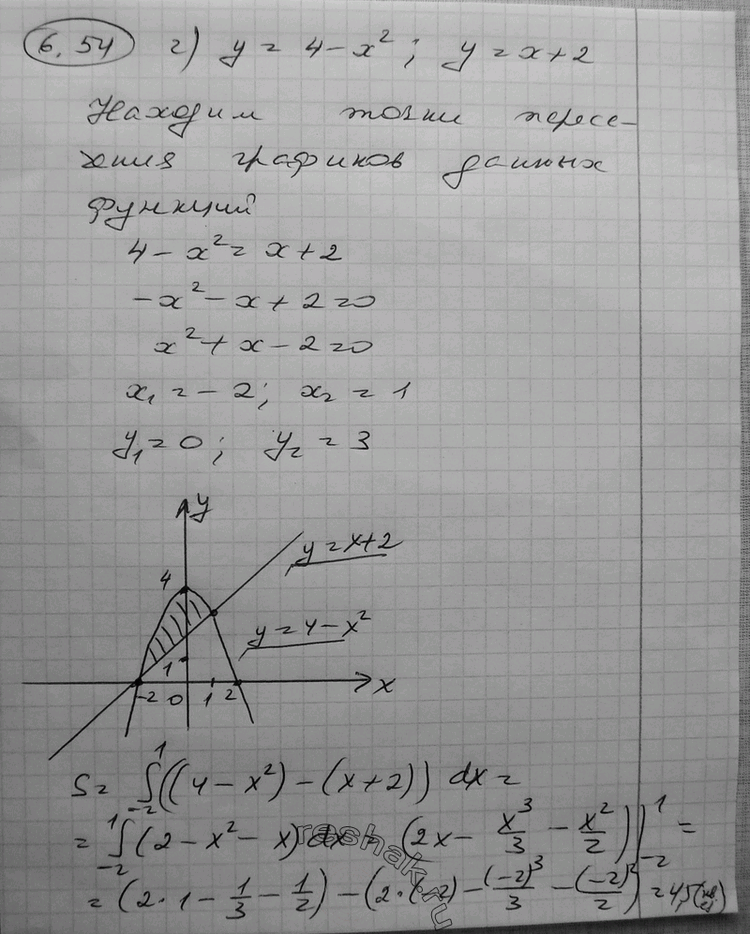 6.54 г) y = 4 - x²; y = x + 2
Находим точки пересе-
чения графиков данных
функций
4 - x² = x + 2
-x² - x + 2 = 0
x² + x - 2 = 0
x₁ = -2; x₂ = 1
y₁ = 0; y₂ = 3
y
y = x + 2
4
y = 4 - x²
1
-2 0 1 2 x
S = ∫₋₂¹((4 - x²) - (x + 2)) dx =
= ∫₋₂¹(2 - x² - x) dx = (2x - x³/3 - x²/2)|₋₂¹ =
= (2·1 - 1/3 - 1/2) - (2·(-2) - (-2)³/3 - (-2)²/2) = 4,5 (кв. ед)
reshak.ru